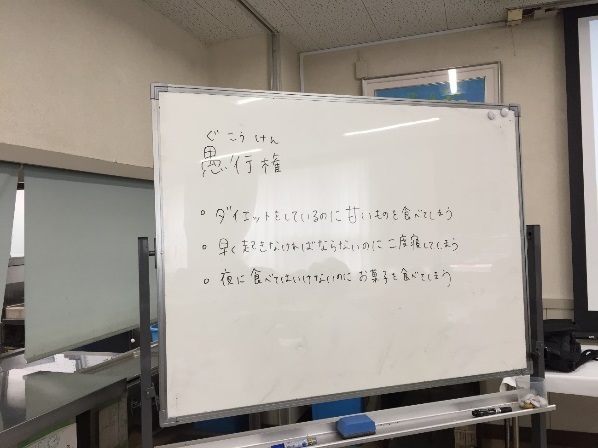 ぐこうけん
愚行権
○ ダイエットをしているのに甘いものを食べてしまう
○ 早く起きなければならないのに二度寝してしまう
○ 夜に食べてはいけないのにお菓子を食べてしまう